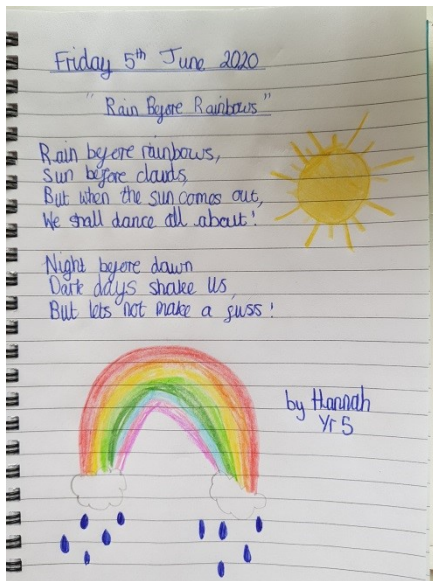 Friday 5th June 2020
"Rain Before Rainbows"
Rain before rainbows,
Sun before clouds,
But when the sun comes out,
We shall dance all about!
Night before dawn
Dark days shake us,
But lets not make a fuss!
by Hannah
Yr 5